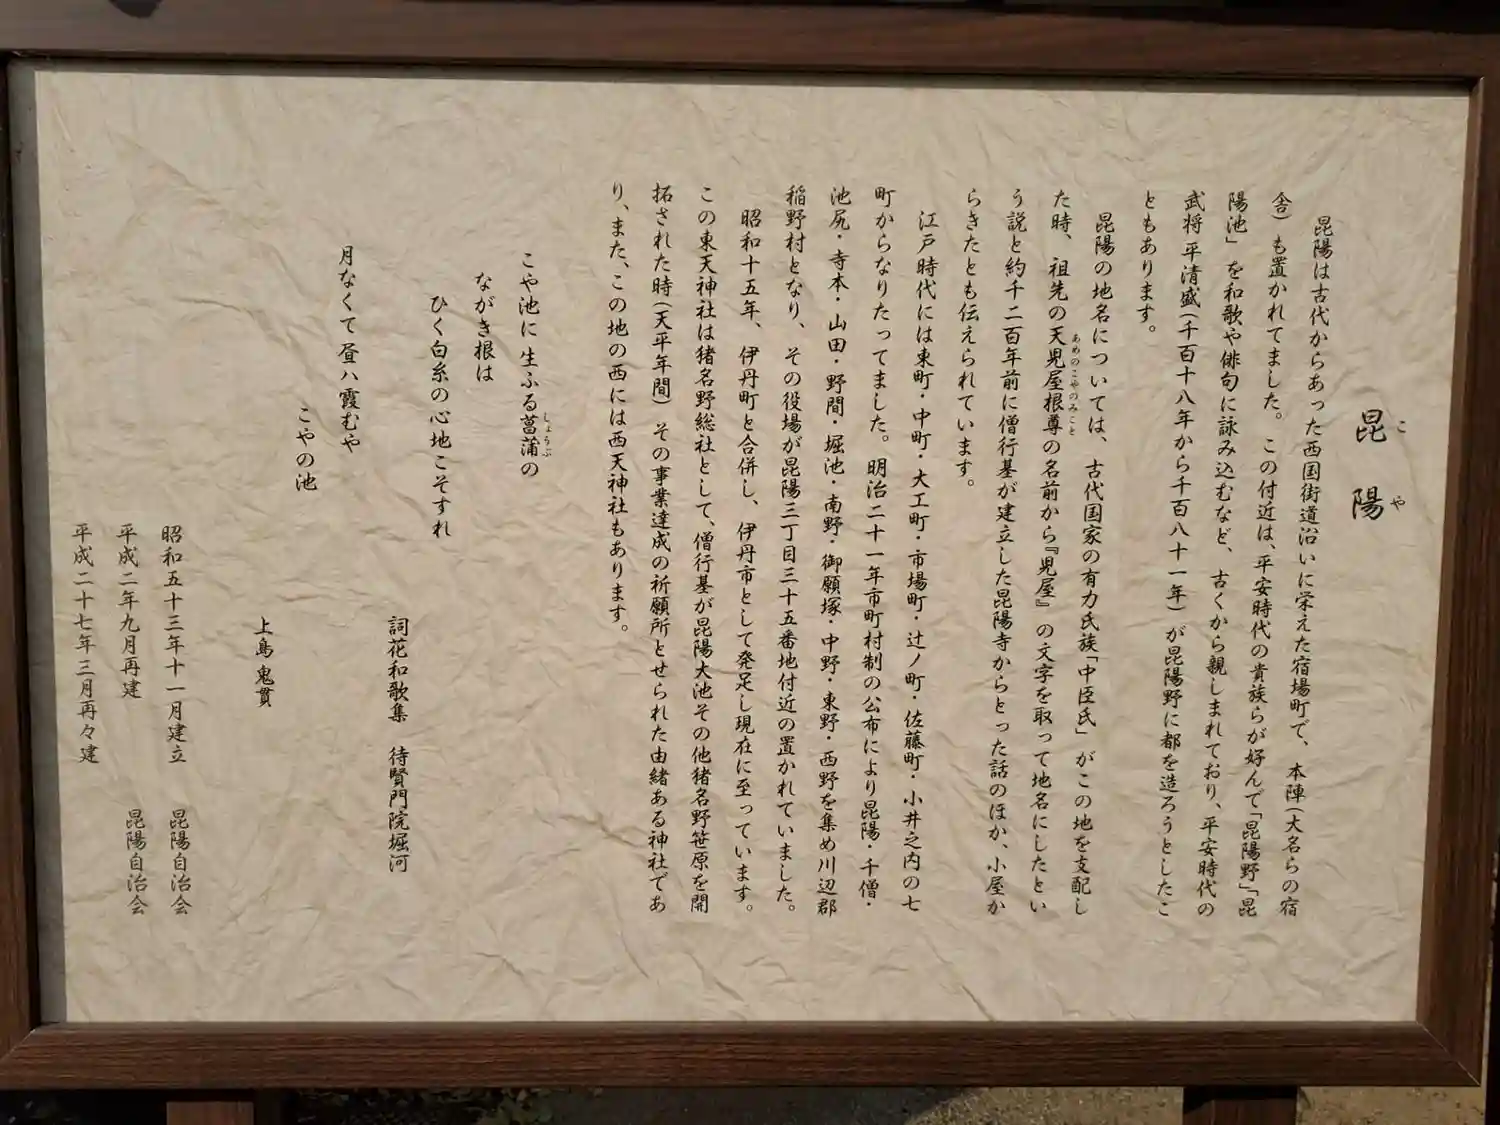 昆陽
こや
昆陽は古代からあった西国街道沿いに栄えた宿場町で、本陣(大名らの宿
舎)も置かれてました。この付近は、平安時代の貴族らが好んで「昆陽野」「昆
陽池」を和歌や俳句に詠み込むなど、古くから親しまれており、平安時代の
武将 平清盛(千百十八年から千百八十一年)が昆陽野に都を造ろうとしたこ
ともあります。
昆陽の地名については、古代国家の有力氏族「中臣氏」がこの地を支配し
た時、祖先の天児屋根尊の名前から『児屋』の文字を取って地名にしたとい
あめのこやのみこと
う説と約千二百年前に僧行基が建立した昆陽寺からとった話のほか、小屋か
らきたとも伝えられています。
江戸時代には東町・中町・大工町・市場町・辻ノ町・佐藤町・小井之内の七
町からなりたってました。明治二十一年市町村制の公布により昆陽・千僧・
池尻・寺本・山田・野間・堀池・南野・御願塚・中野・東野・西野を集め川辺郡
稲野村となり、その役場が昆陽三丁目三十五番地付近の置かれていました。
昭和十五年、伊丹町と合併し、伊丹市として発足し現在に至っています。
この東天神社は猪名野総社として、僧行基が昆陽大池その他猪名野笹原を開
拓された時(天平年間)その事業達成の祈願所とせられた由緒ある神社であ
り、また、この地の西には西天神社もあります。
こや池に 生ふる菖蒲の
しょうぶ
ながき根は
ひく白糸の心地こそすれ
詞花和歌集 待賢門院堀河
月なくて 昼ハ霞むや
こやの池
上島 鬼貫
昭和五十三年十一月建立 昆陽自治会
平成二年九月再建 昆陽自治会
平成二十七年三月再々建